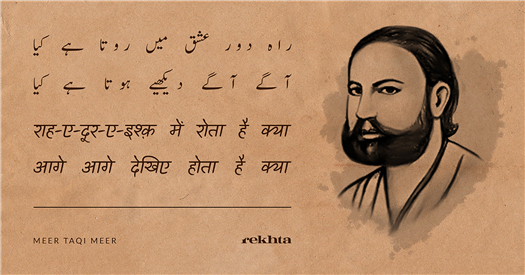 راہ دور عشق میں روتا ہے کیا
آگے آگے دیکھیے ہوتا ہے کیا
राह-ए-दूर-ए-इश्क़ में रोता है क्या
आगे आगे देखिए होता है क्या
MEER TAQI MEER
rekhta